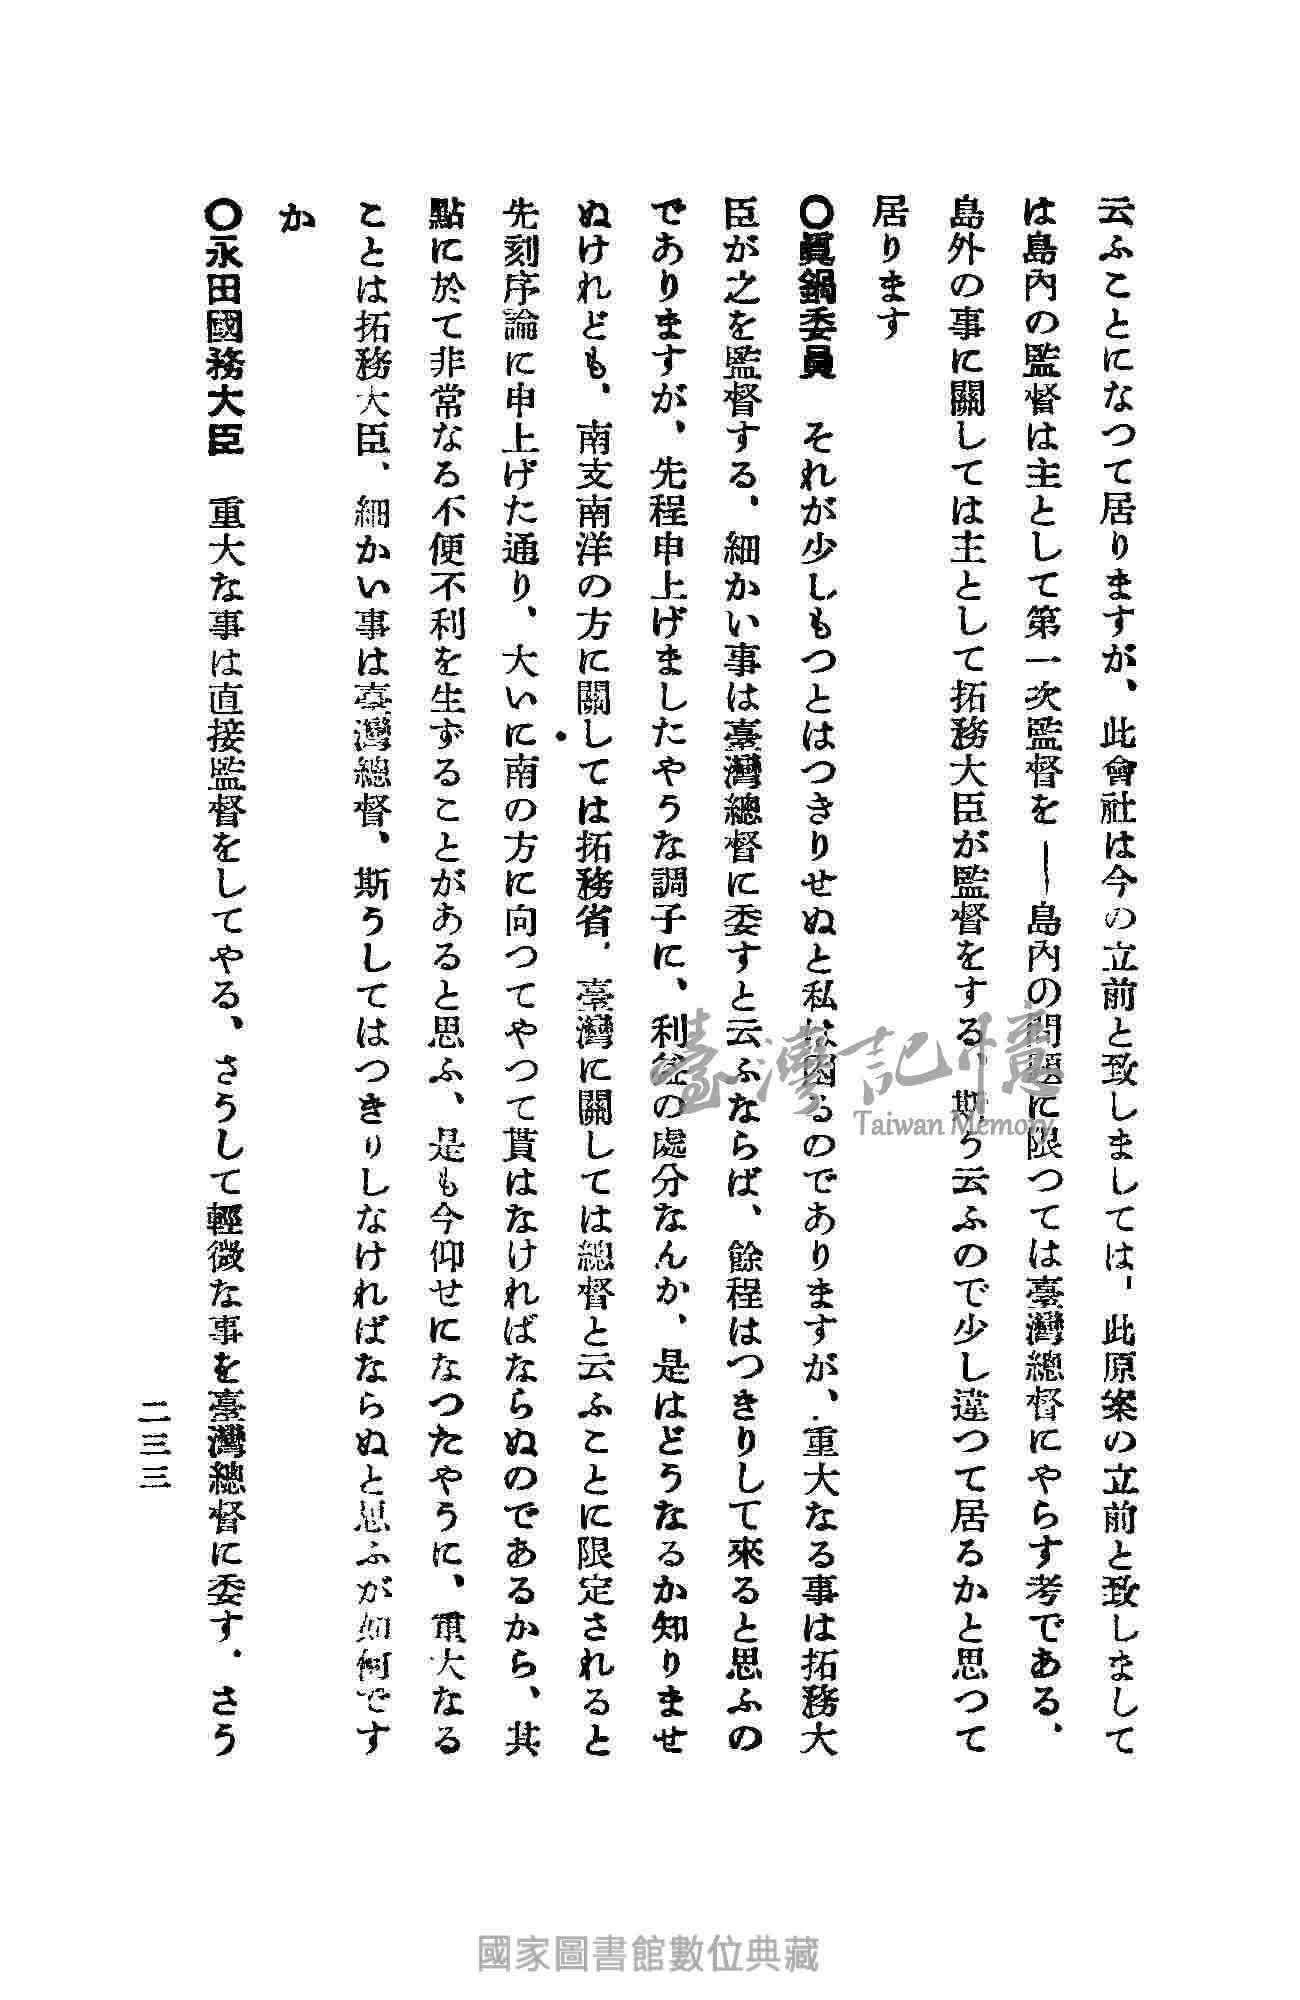 云ふことになつて居りますが、此會社は今の立前と致しましては、此原案の立前と致しまして
は島內の監督は主として第一次監督を―島內の問題に限つては臺灣總督にやらす考である、
島外の事に關しては主として拓務大臣が監督をする、斯う云ふので少し違つて居るかと思つて
居ります
〇眞鍋委員　それが少しもつとはつきりせぬと私は困るのでありますが、重大なる事は拓務大
臣が之を監督する、細かい事は臺灣總督に委すと云ふならば、餘程はつきりして來ると思ふの
でありますが、先程申上げましたやうな調子に、利益の處分なんか、是はどうなるか知りませ
ぬけれども、南支南洋の方に關しては拓務省、臺灣に關しては總督と云ふことに限定されると
先刻序論に申上げた通り、大いに南の方に向つてやつて貰はなければならぬのであるから、其
點に於て非常なる不便不利を生ずることがあると思ふ、是も今仰せになつたやうに、重大なる
ことは拓務大臣、細かい事は臺灣總督、斯うしてはつきりしなければならぬと思ふが如何です
か
〇永田國務大臣　重大な事は直接監督をしてやる、さうして輕微な事を臺灣總督に委す、さう
二三三
臺灣記憶
Taiwan Memory
國家圖書館數位典藏